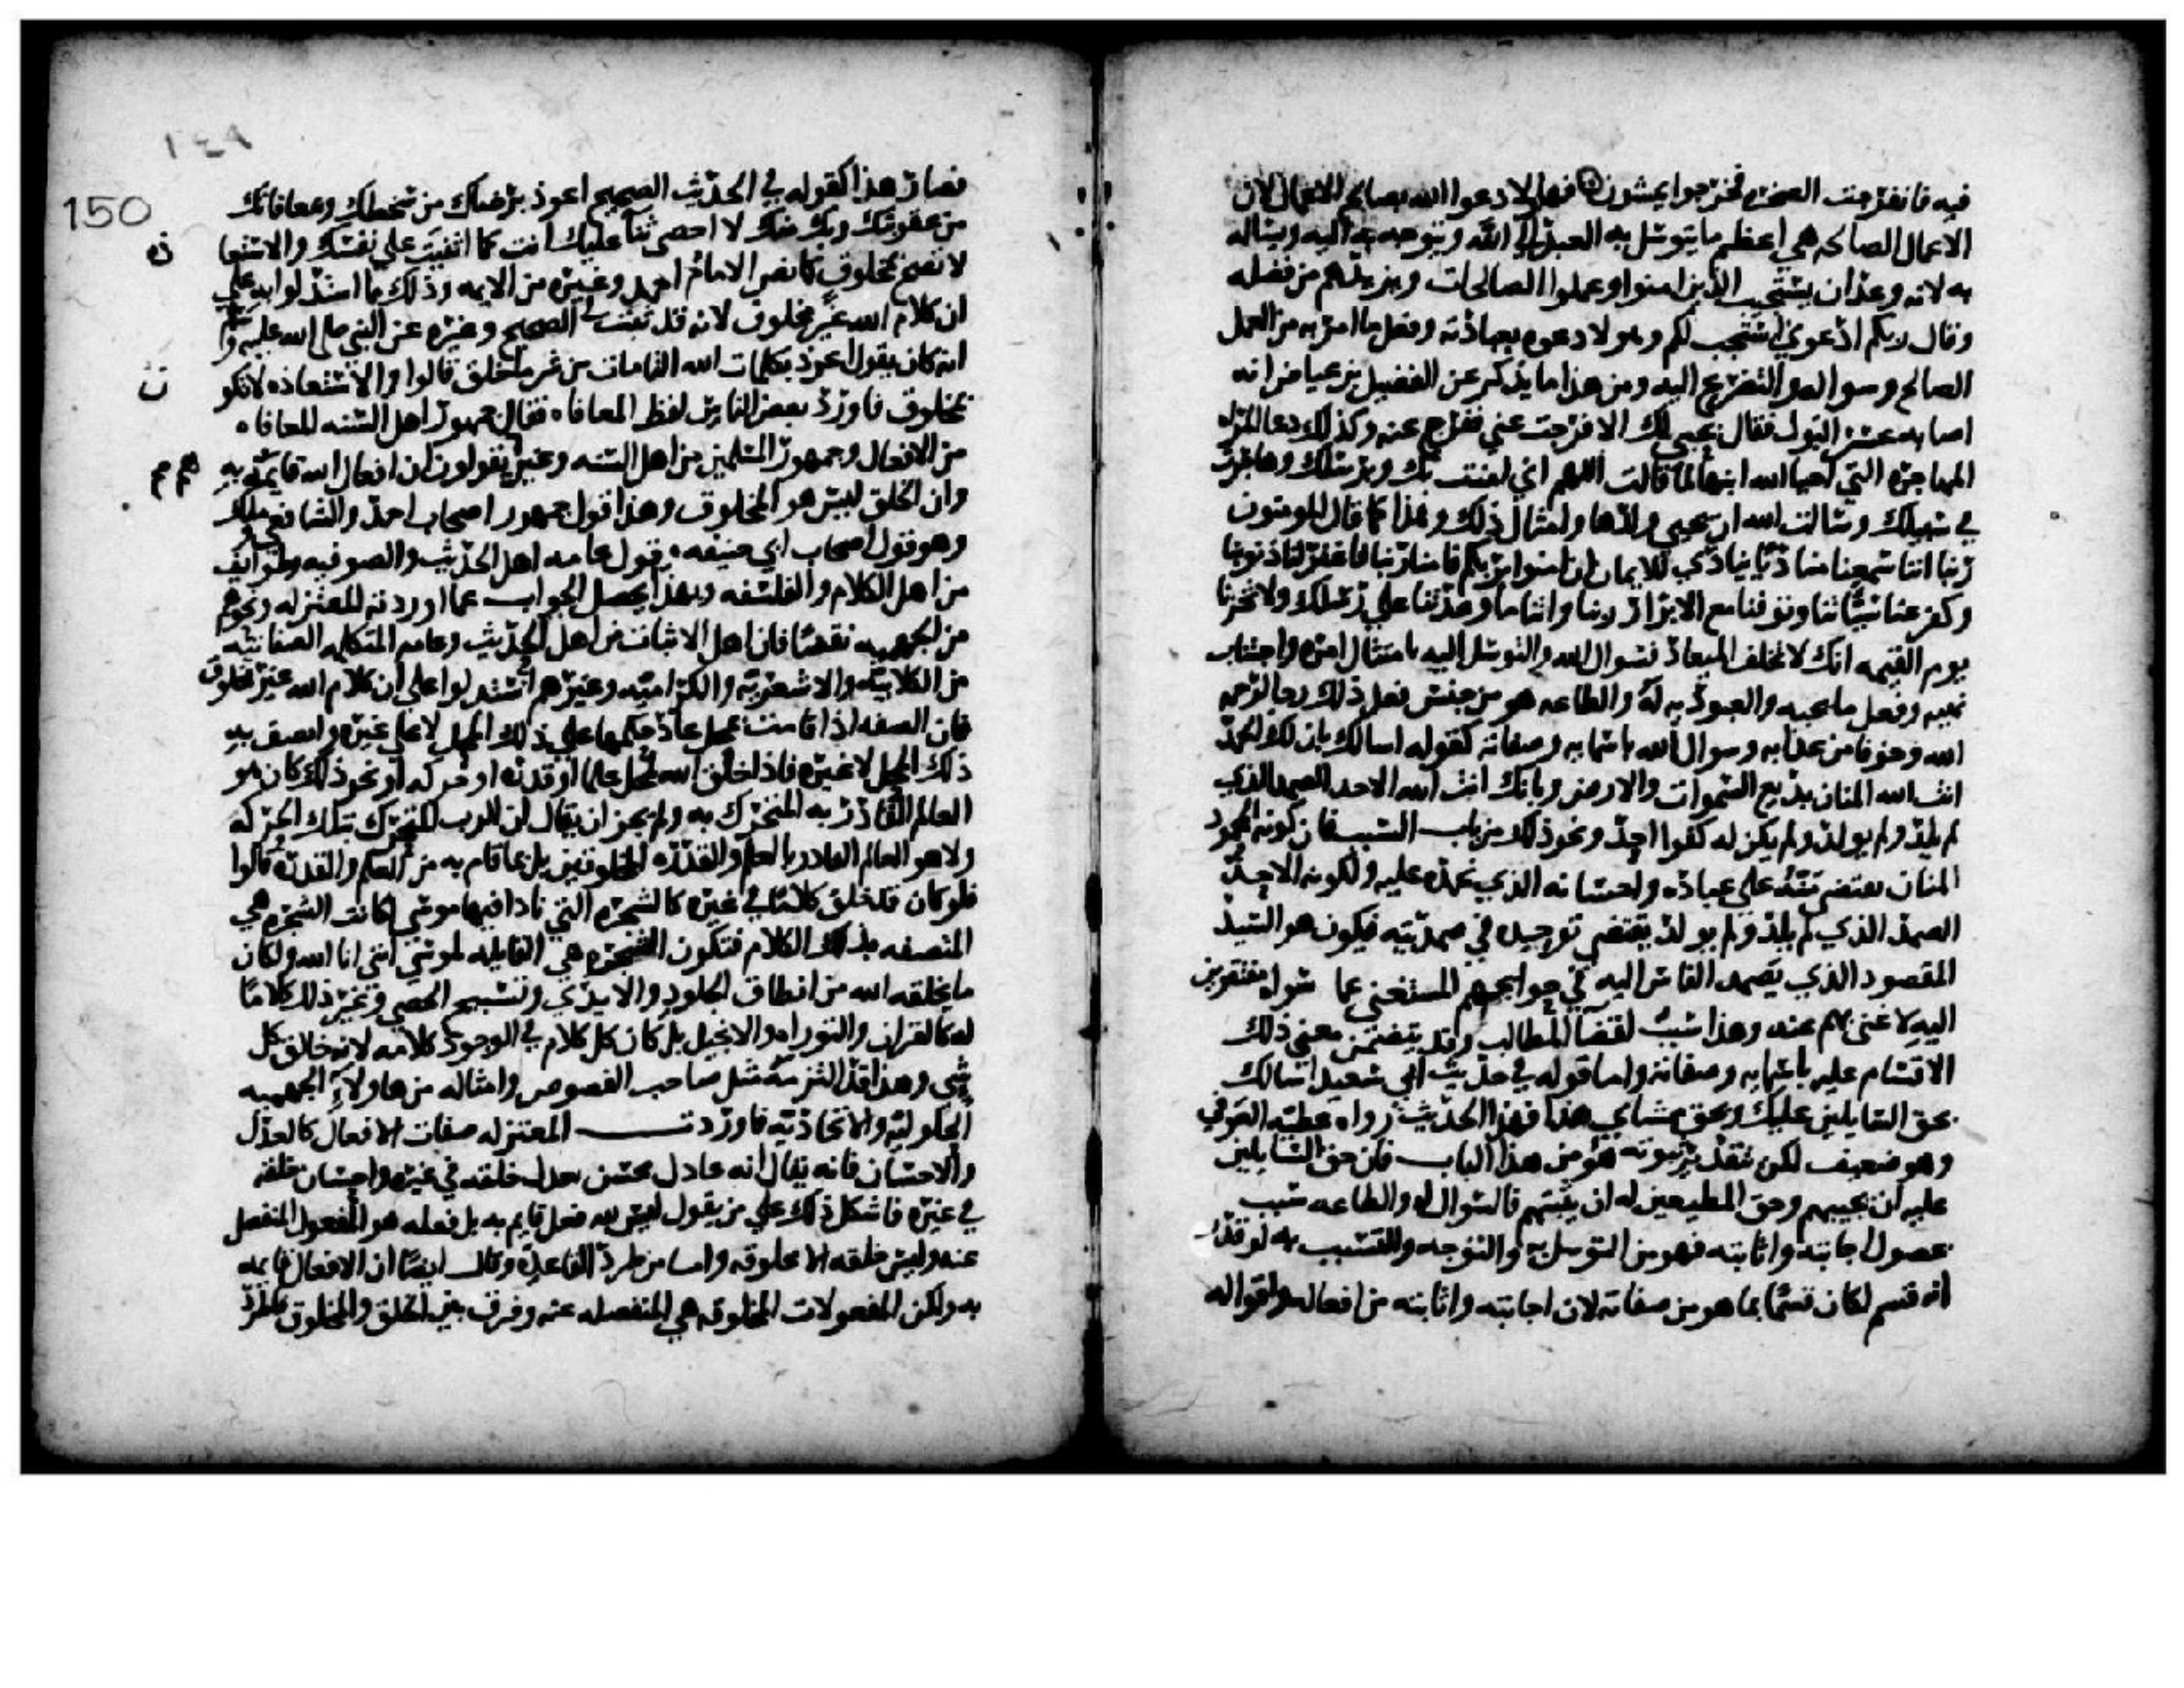 فيه فانفرجت الصخرة فخرجوا يمشون فهولا دعوا الله بصالح الاعمال لان
الاعمال الصالحه هي اعظم ما يتوسل به العبد الى الله ويتوجه به اليه ويساله
به لانه وعد ان يستجيب الذين امنوا وعملوا الصالحات ويزيدهم من فضله
وقال ربكم ادعوني استجب لكم وهولا دعوه بعبادته وفعل ما امر به من العمل
الصالح وسواله والتضرع اليه ومن هذا ما يذكر عن الفضيل بن عياض انه
اصابه عسر البول فقال بحبي لك الا فرجت عني ففرج عنه وكذلك دعا المراه
المهاجره التي احيا الله ابنها لما قالت اللهم اني امنت بك وبرسلك وهاجرت
في سبيلك وسالت الله ان يحيي ولدها وامثال ذلك وهذا كما قال المومنون
ربنا اننا سمعنا مناديا ينادي للايمان ان امنوا بربكم فامنا ربنا فاغفر لنا ذنوبنا
وكفر عنا سياتنا وتوفنا مع الابرار ربنا واتنا ما وعدتنا على رسلك ولا تخزنا
يوم القيمه انك لا تخلف الميعاد فسوال الله والتوسل اليه بامتثال امره واجتناب
نهيه وفعل ما يحبه والعبوديه له والطاعه هو من جنس فعل ذلك رجا لرحمه
الله وخوفا من عذابه وسوال الله باسمايه وصفاته كقوله اسالك بان لك الحمد
انت الله المنان بديع السموات والارض وبانك انت الله الاحد الصمد الذي
لم يلد ولم يولد ولم يكن له كفوا احد ونحو ذلك من باب التسبب فان كونه المحمود
المنان يقتضي منته على عباده واحسانه الذي نحمده عليه ولكونه الاحد
الصمد الذي لم يلد ولم يولد يقتضي توحيده في صمديته فيكون هو السيد
المقصود الذي يصمد الناس اليه في حوايجهم المستغني عما سواه مفتقرين
اليه لا غنى بهم عنه وهذا سبب لقضا المطالب وقد يتضمن معنى ذلك
الاقسام عليه باسمايه وصفاته واما قوله في حديث ابي سعيد اسالك
بحق السايلين عليك وبحق ممشاي هذا فهذا الحديث رواه عطيه العوفي
وهو ضعيف لكن بتقدير ثبوته هو من هذا الباب فان حق السايلين
عليه ان يجيبهم وحق المطيعين له ان يثيبهم فالسوال له والطاعه سبب
لحصول اجابته واثابته فهو من التوسل به والتوجه والتسبب به لو قدر
انه قسم لكان قسما بما هو من صفاته لان اجابته واثابته من افعاله واقواله
١٤٩
150
فصار هذا كقوله في الحديث الصحيح اعوذ برضاك من سخطك وبمعافاتك
من عقوبتك وبك منك لا احصي ثنا عليك انت كما اثنيت على نفسك والاستعا
ن
لا تصح بمخلوق كما نص الامام احمد وغيره من الايمه وذلك مما استدلوا به على
ان كلام الله غير مخلوق لانه قد ثبت في الصحيح وغيره عن النبي صلى الله عليه وسلم
انه كان يقول اعوذ بكلمات الله التامات من شر ما خلق قالوا والاستعاذه لا تكو
ن
بمخلوق فاورد بعض الناس لفظ المعافاه فقال جمهور اهل السنه المعافاه
من الافعال وجمهور المسلمين من اهل السنه وغيرهم يقولون ان افعال الله قايمه به
وان الخلق ليس هو المخلوق وهذا قول جمهور اصحاب احمد والشافعي ومالك
وهو قول اصحاب ابي حنيفه وقول عامه اهل الحديث والصوفيه وطوايف
من اهل الكلام والفلسفه وبهذا يحصل الجواب عما اوردته المعتزله ونحوهم
من الجهميه نقضا فان اهل الاثبات من اهل الحديث وعامه المتكلمه الصفاتيه
من الكلابيه والاشعريه والكراميه وغيرهم استدلوا على ان كلام الله غير مخلوق
فان الصفه اذا قامت بمحل عاد حكمها على ذلك المحل لا على غيره واتصف به
ذلك المحل لا غيره فاذا خلق الله لمحل علما او قدره او حركه او نحو ذلك كان هو
العالم القادر به المتحرك به ولم يجز ان يقال ان الرب المتحرك بتلك الحركه
ولا هو العالم القادر بالعلم والقدره المخلوقتين بل بما قام به من العلم والقدره قالوا
فلو كان قد خلق كلاما في غيره كالشجره التي نادا فيها موسى لكانت الشجره هي
المتصفه بذلك الكلام فتكون الشجره هي القايله لموسى انني انا الله ولكان
ما يخلقه الله من انطاق الجلود والايدي وتسبيح الحصى وغير ذلك كلاما
له كالقران والتوراه والانجيل بل كان كل كلام في الوجود كلامه لانه خالق كل
شي وهذا قد التزمه مثل صاحب الفصوص وامثاله من هاولاء الجهميه
الحلوليه والاتحاديه فاوردت المعتزله صفات الافعال كالعدل
والاحسان فانه يقال انه عادل محسن بعدل خلقه في غيره واحسان خلقه
في غيره فاشكل ذلك على من يقول ليس لله فعل قايم به بل فعله هو المفعول المنفصل
عنه وليس خلقه الا مخلوقه واما من طرد القاعده وقال ايضا ان الافعال قايمه
به ولكن المفعولات المخلوقه هي المنفصله عنه وفرق بين الخلق والمخلوق فاطرد